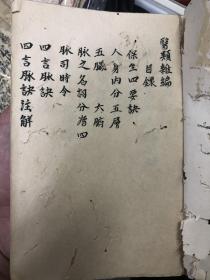 醫類雜編
目錄
保生四要訣
人身內分五層
五臟 六腑
脉之名詞分居四
脉司時令
四言脉訣
四言脉訣法解